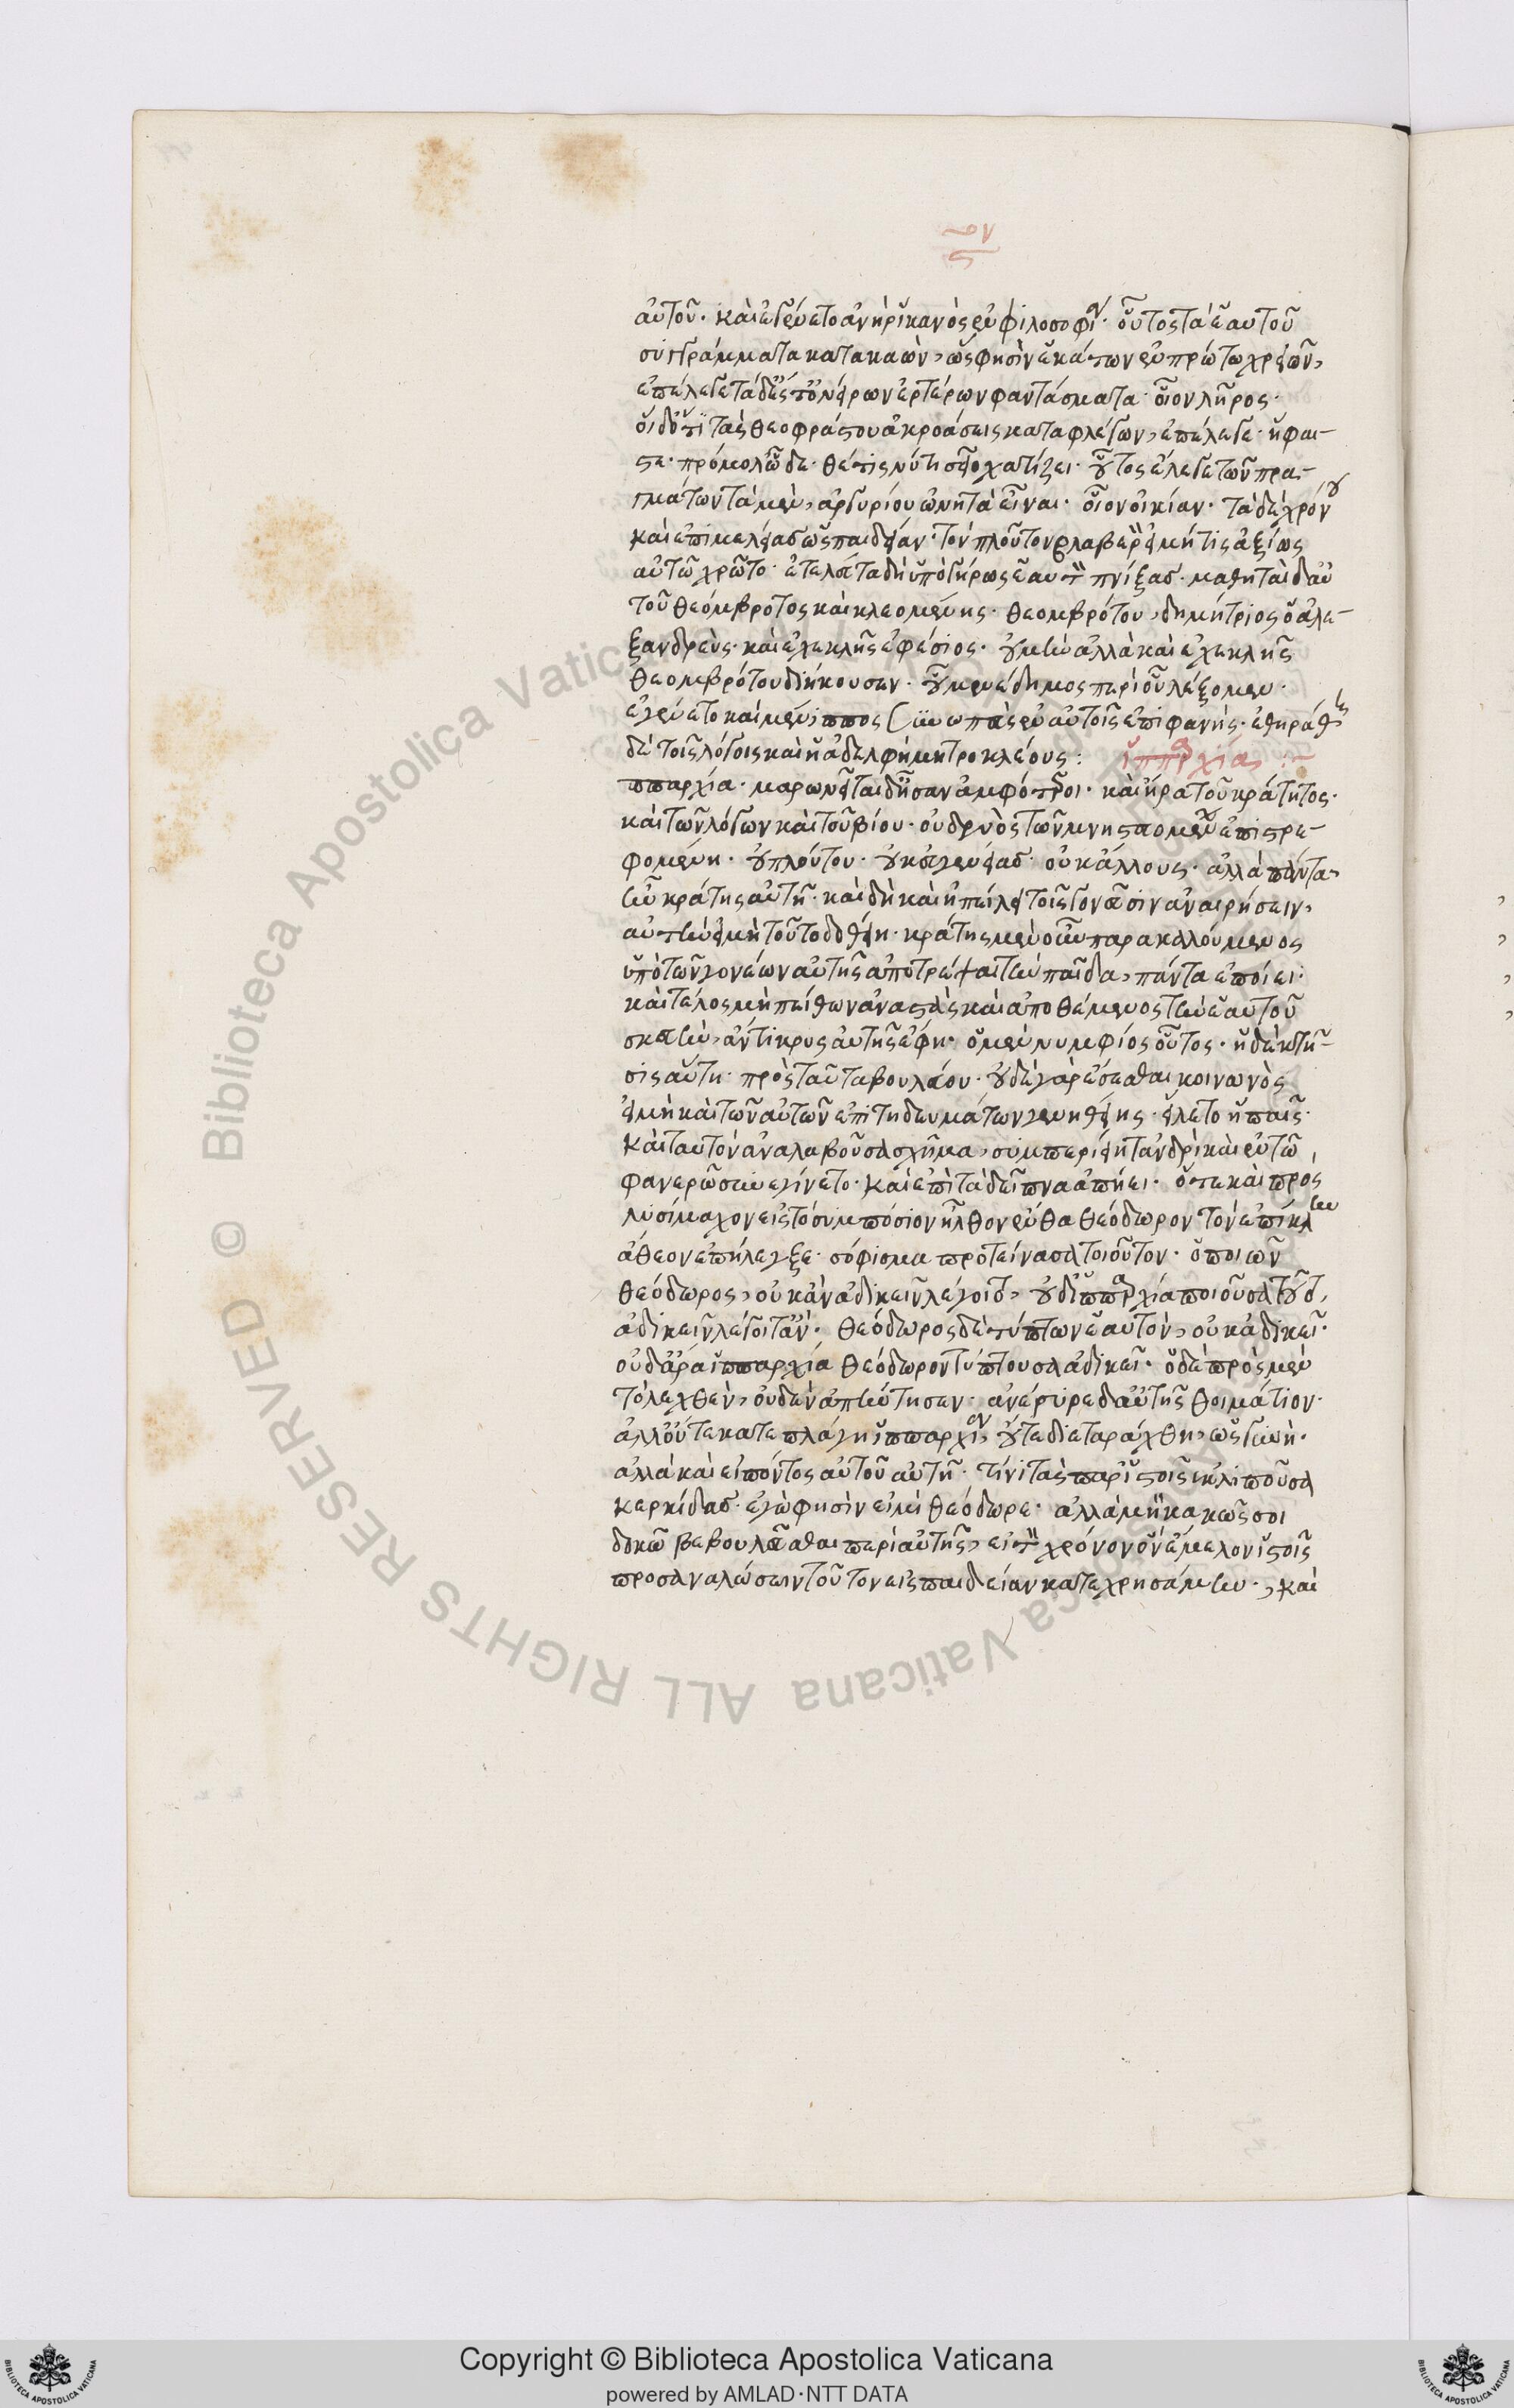 αὐτοῦ. καὶ ἐγένετο ἀνὴρ ἱκανὸς ἐν φιλοσοφίᾳ. οὗτος τὰ ἑαυτοῦ
συγγράμματα κατακαων, ὥς φησιν ἑκάτων ἐν πρώτω χρειῶν,
ἐπέλεγε τάδ' ἔστ' ὀνείρων ἐρτέρων φαντάσματα. οἷον λῆρος.
οἱ δ' ὅτι τὰς θεοφράστου ἀκροάσεις καταφλέγων, ἐπέλεγε. ἥφαι-
στε. πρόμολ' ὧδε. θέτις νύ τι σεῖο χατίζει. οὗτος ἔλεγε τῶν πρα-
γμάτων τὰ μὲν, ἀργυρίου ὠνητὰ εἶναι. οἷον οἰκίαν. τὰ δὲ χρόνου
καὶ ἐπιμελείας ὡς παιδείαν. τὸν πλοῦτον βλαβερὸν εἰ μή τις ἀξίως
αὐτῶ χρῶτο. ἐτελεύτα δὴ ὑπὸ γήρως ἑαυτὸν πνίξας. μαθηταὶ δ' αὐ
τοῦ θεόμβροτος καὶ κλεομένης. θεομβρότου, δημήτριος ὁ ἀλε-
ξανδρεὺς. καὶ ἐχεκλῆς ἐφέσιος. οὐ μὴν ἀλλὰ καὶ ἐχεκλῆς
θεομβρότου διήκουσεν. οὗ μενέδημος περὶ οὗ λέξομεν.
ἐγένετο καὶ μένιππος σινωπεὺς ἐν αὐτοῖς ἐπιφανής. ἐθηράθη
δὲ τοῖς λόγοις καὶ ἡ ἀδελφὴ μητροκλέους :   ἱππαρχίας :-
ππαρχία. μαρωνεῖται δ' ἦσαν ἀμφότεροι. καὶ ἤρα τοῦ κράτητος.
καὶ τῶν λόγων καὶ τοῦ βίου. οὐδενὸς τῶν μνηστευομένων ἐπιστρε-
φομένη. οὐ πλούτου. οὐκ εὐγενείας. οὐ κάλλους. ἀλλὰ πάντα
ἦν κράτης αὐτῆ. καὶ δὴ καὶ ἠπείλει τοῖς γονεῦσιν ἀναιρήσειν,
αὑτὴν εἰ μὴ τοῦτο δοθείη. κράτης μὲν οὖν παρακαλούμενος
ὑπὸ τῶν γονέων αὐτῆς ἀποτρέψαι τὴν παῖδα, πάντα ἐποίει.
καὶ τέλος μὴ πείθων ἀναστὰς καὶ ἀποθέμενος τὴν ἑαυτοῦ
σκευὴν, ἀντικρυς αὐτῆς ἔφη. ὁ μὲν νυμφίος οὗτος. ἡ δὲ κτῆ-
σις αὕτη. πρὸς ταῦτα βουλεύου. οὐδὲ γὰρ ἔσεσθαι κοινωνὸς
εἰ μὴ καὶ τῶν αὐτῶν ἐπιτηδευμάτων γενηθείης. εἵλετο ἡ παῖς.
καὶ ταυτὸν ἀναλαβοῦσα σχῆμα, συμπεριήει τἀνδρὶ καὶ ἐν τῶ
φανερῶ συνεγίνετο. καὶ ἐπὶ τὰ δεῖπνα ἀπήει. ὅτε καὶ πρὸς
λυσίμαχον εἰς τὸ συμπόσιον ἦλθον ἔνθα θεόδωρον τὸν ἐπίκλην
ἄθεον ἐπήλεγξε. σόφισμα προτείνασα τοιοῦτον. ὃ ποιῶν
θεόδωρος, οὐκ ἂν ἀδικεῖν λέγοιτ', οὐδ' ἱππαρχία ποιοῦσα τοῦτ',
ἀδικεῖν λέγοιτ' ἄν. θεόδωρος δὲ τύπτων ἑαυτὸν, οὐκ ἀδικεῖ.
οὐδ' ἄρα ἱππαρχία θεόδωρον τύπτουσα ἀδικεῖ. ὁ δὲ πρὸς μὲν
τὸ λεχθὲν, οὐδὲν ἀπήντησεν. ἀνέσυρε δ' αὐτῆς θοιμάτιον.
ἀλλ' οὔτε κατεπλάγη ἱππαρχία, οὔτε διεταράχθη, ὡς γυνὴ.
ἀλλὰ καὶ εἰπόντος αὐτοῦ αὐτῆ. τίνι τὰς παρ' ἱστοῖς ἐκλιποῦσα
κερκίδας. ἐγὼ φησὶν εἰμὶ θεόδωρε. ἀλλὰ μὴ κακῶς σοι
δοκῶ βεβουλεῦσθαι περὶ αὐτῆς, εἰ τὸν χρόνον ὃν ἔμελον ἱστοῖς
προσαναλώσειν τοῦτον εἰς παιδείαν κατεχρησάμην., καὶ
© Biblioteca Apostolica Vaticana ALL RIGHTS RESERVED
Copyright © Biblioteca Apostolica Vaticana
powered by AMLAD·NTT DATA
BIBLIOTECA APOSTOLICA VATICANA
BIBLIOTECA APOSTOLICA VATICANA